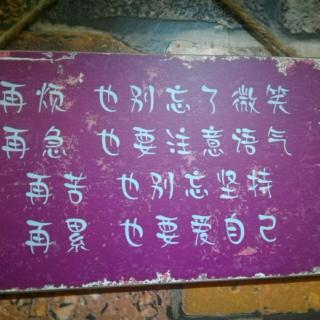 再烦 也别忘了微笑
再急 也要注意语气
再苦 也别忘坚持
再累 也要爱自己